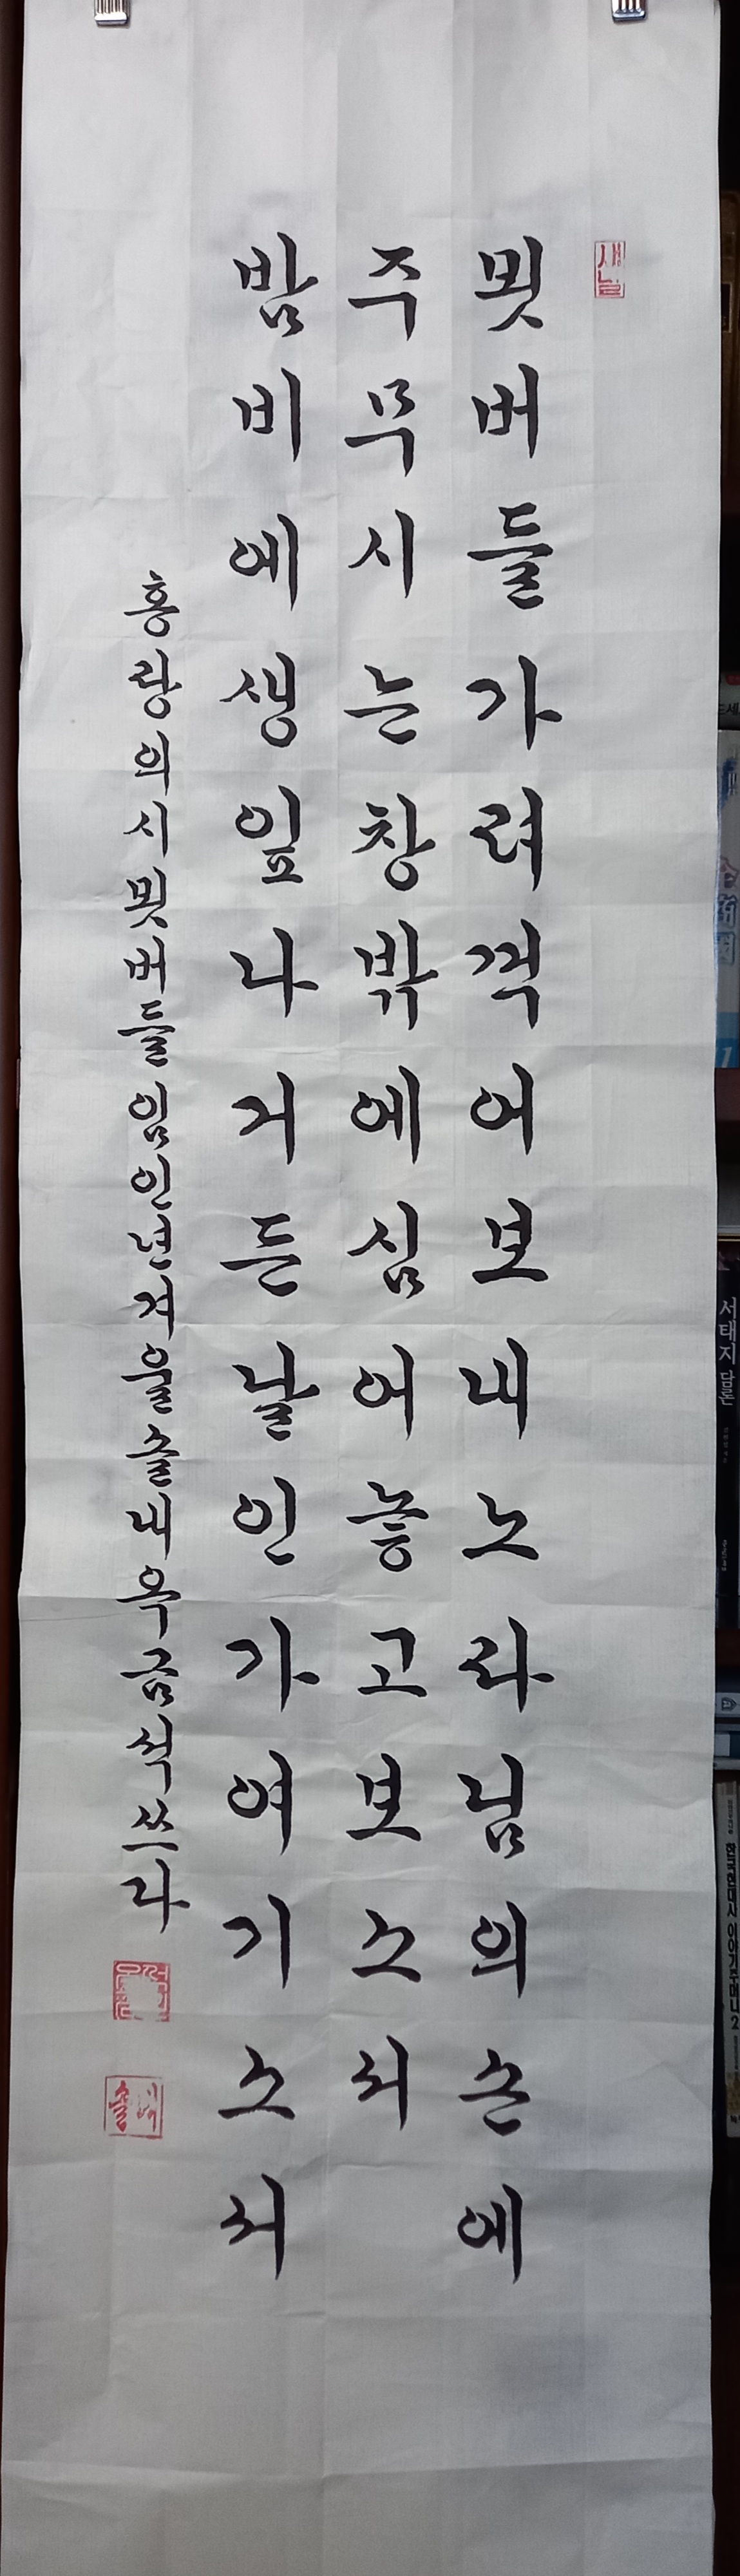 새날
묏버들가려꺽어보내노라님의손에
주무시는창밖에심어놓고보소서
밤비에새잎나거든날인가여기소서
홍랑의시묏버들임인년겨울솔내우금석쓰다
솔내
서태지 담론
한국현대시 이야기주머니 2